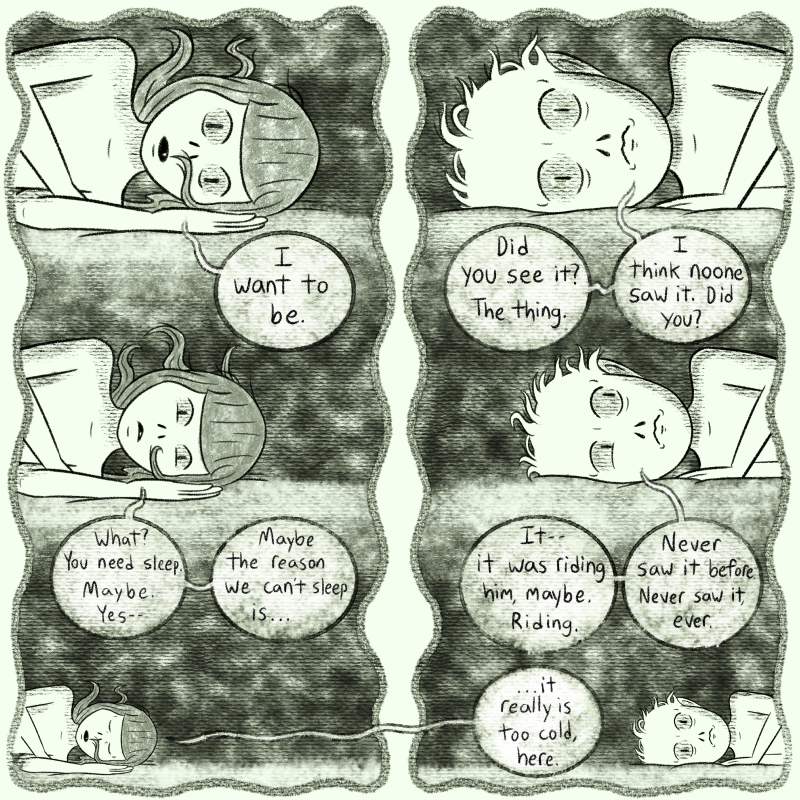 I
want to
be.
Did
you see it?
The thing.
I
think noone
saw it. Did
you?
What?
You need sleep.
Maybe.
Yes--
Maybe
the reason
we can't sleep
is...
It--
it was riding
him, maybe.
Riding.
Never
saw it before.
Never saw it,
ever.
...it
really is
too cold,
here.